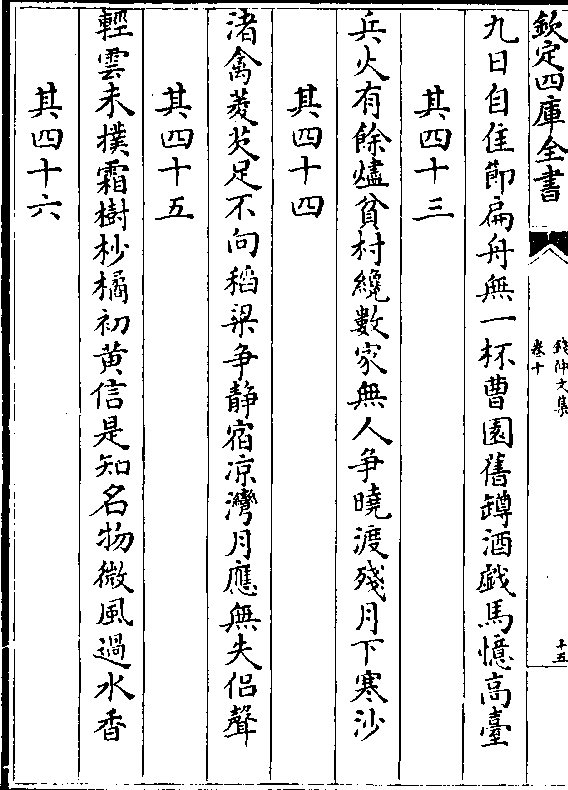 欽定四庫全書
錢仲文集
卷十
十五
九日自佳節扁舟無一杯曹園舊罇酒戲馬憶高臺
其四十三
兵火有餘燼貧村纔數家無人争曉渡殘月下寒沙
其四十四
渚禽菱芡足不向稻粱争静宿凉灣月應無失侣聲
其四十五
輕雲未撲霜樹杪橘初黄信是知名物微風過水香
其四十六